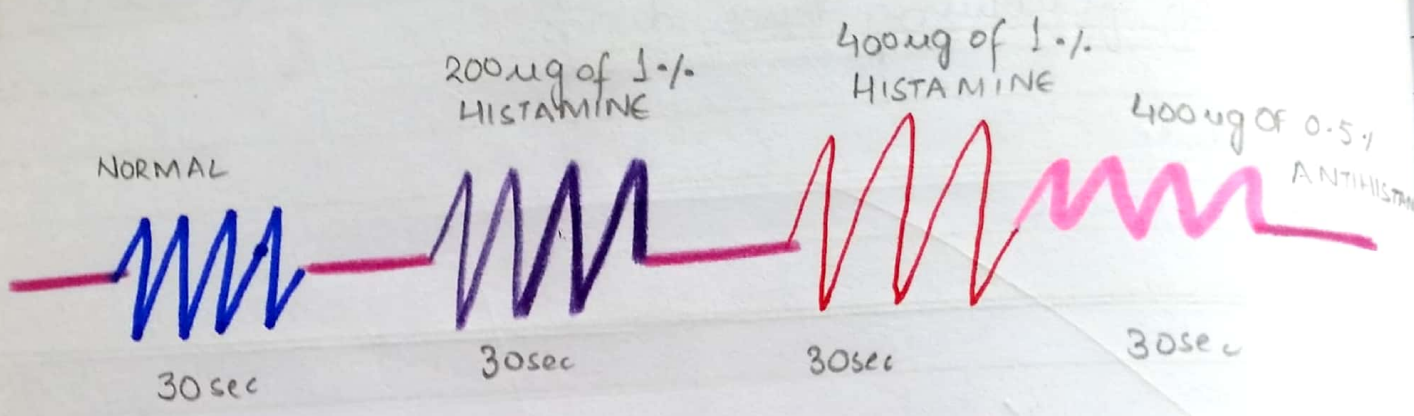 NORMAL
30sec
200ug of 1%
HISTAMINE
30sec
400ug of 1%
HISTAMINE
30sec
400ug OF 0.5%
ANTIHISTAM
30sec